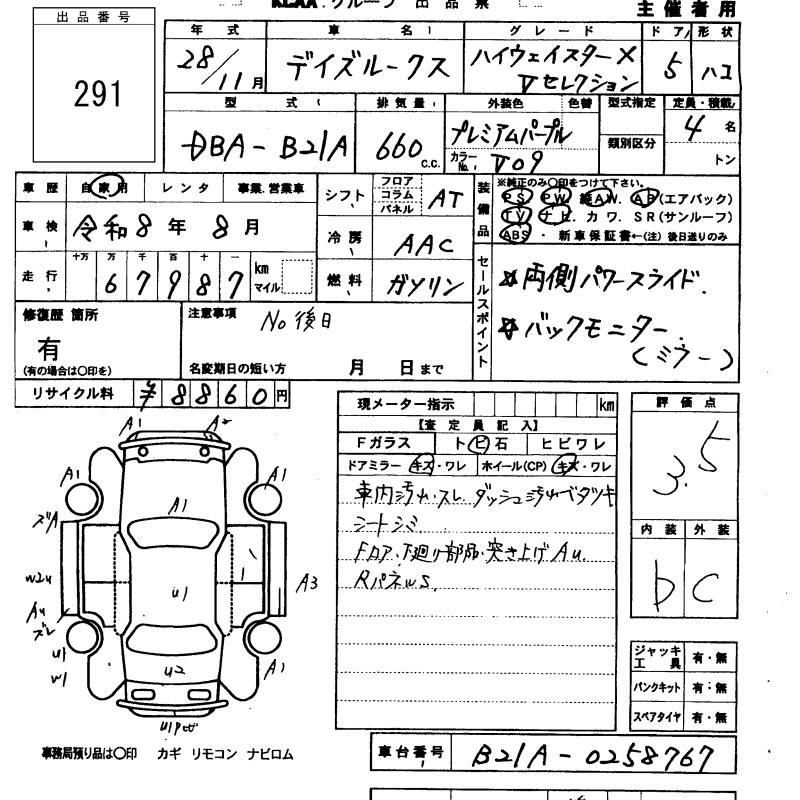 KCAA グループ 出品票
主催者用
出品番号
291
年式 車名 グレード ドア 形状
28/11月 デイズルークス ハイウェイスターX Vセレクション 5 ハコ
型式 排気量 外装色 色替 型式指定 定員・積載
DBA-B21A 660 C.C. プレミアムパープル 類別区分 4名
カラーNo. V09 トン
車歴 自家用 レンタ 事業.営業車 シフト フロア コラム パネル AT
装備品 ※純正のみ〇印をつけて下さい。
PS PW 純AW. AB(エアバック)
TV ナビ. カワ. SR(サンルーフ)
ABS ・ 新車保証書←(注)後日送りのみ
車検 令和8年 8月 冷房 AAC
走行 十万 万 千 百 十 一 km マイル
67987 燃料 ガソリン
セールスポイント
☆両側パワースライド.
☆バックモニター
(ミラー)
修復歴 箇所 注意事項 No後日
有
(有の場合は〇印を) 名変期日の短い方 月 日まで
リサイクル料 ¥8860円
現メーター指示 km
【査定員記入】
Fガラス トビ石 ヒビワレ
ドアミラー キズ・ワレ ホイール(CP) キズ・ワレ
車内汚れ.スレ.ダッシュ汚れベタツキ
シートシミ
Fロア.下廻り部品.突き上げAu.
RパネルS.
評価点
3.5
内装 外装
D C
A1 A2
A1 A1
A1
ズA
W2 U1 A3
Au
ズレ
U1
W1 U2 A1
ジャッキ工具 有・無
パンクキット 有・無
スペアタイヤ 有・無
事務局預り品は〇印 カギ リモコン ナビロム
車台番号 B21A-0258767